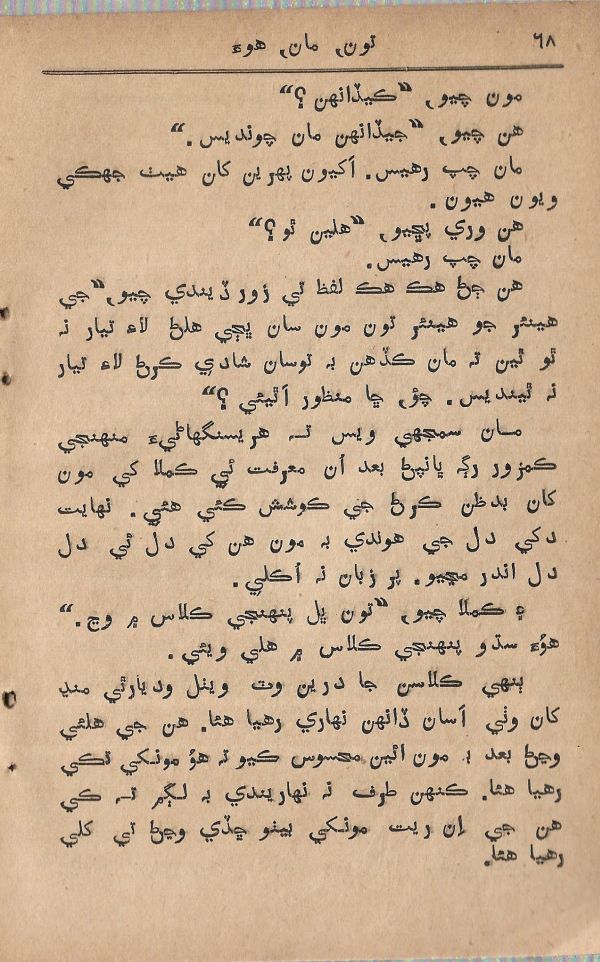 ٦٨ تون, مان, هوءَ
مون چيو, ”ڪيڏانهن؟“
هن چيو, ”جيڏانهن مان چونديس.“
مان چپ رهيس. اکيون پهرين کان هيٺ جهڪي
ويون هيون.
هن وري پڇيو, ”هلين ٿو؟“
مان چپ رهيس.
هن ڄڻ هڪ هڪ لفظ تي زور ڏيندي چيو, ”جي
هينئر جو هينئر تون مون سان ڀڄي هلڻ لاءِ تيار نہ
ٿو ٿين تہ مان ڪڏهن بہ توسان شادي ڪرڻ لاءِ تيار
نہ ٿينديس. چؤ, ڇا منظور اٿيئي؟“
مان سمجهي ويس تہ هريسنگهاڻيءَ منهنجي
ڪمزور رڳ ڀانپڻ بعد اُن معرفت ئي ڪملا کي مون
کان بدظن ڪرڻ جي ڪوشش ڪئي هئي. نهايت
دکي دل جي هوندي بہ مون هن کي دل ئي دل
دل اندر مڃيو. پر زبان نہ اُڪلي.
۽ ڪملا چيو, ”تون ڀل پنهنجي ڪلاس ۾ وڃ.“
هوءَ سڌو پنهنجي ڪلاس ۾ هلي ويئي.
ٻنهي ڪلاسن جا درين وٽ ويٺل وديارٿي منڍ
کان وٺي اسان ڏانهن نهاري رهيا هئا. هن جي هلئي
وڃڻ بعد بہ مون ائين محسوس ڪيو تہ هوُ مونکي تڪي
رهيا هئا. ڪنهن طرف نہ نهاريندي بہ لڳم تہ ڪي
هن جي اِن ريت مونکي بيٺو ڇڏي وڃڻ تي کلي
رهيا هئا.